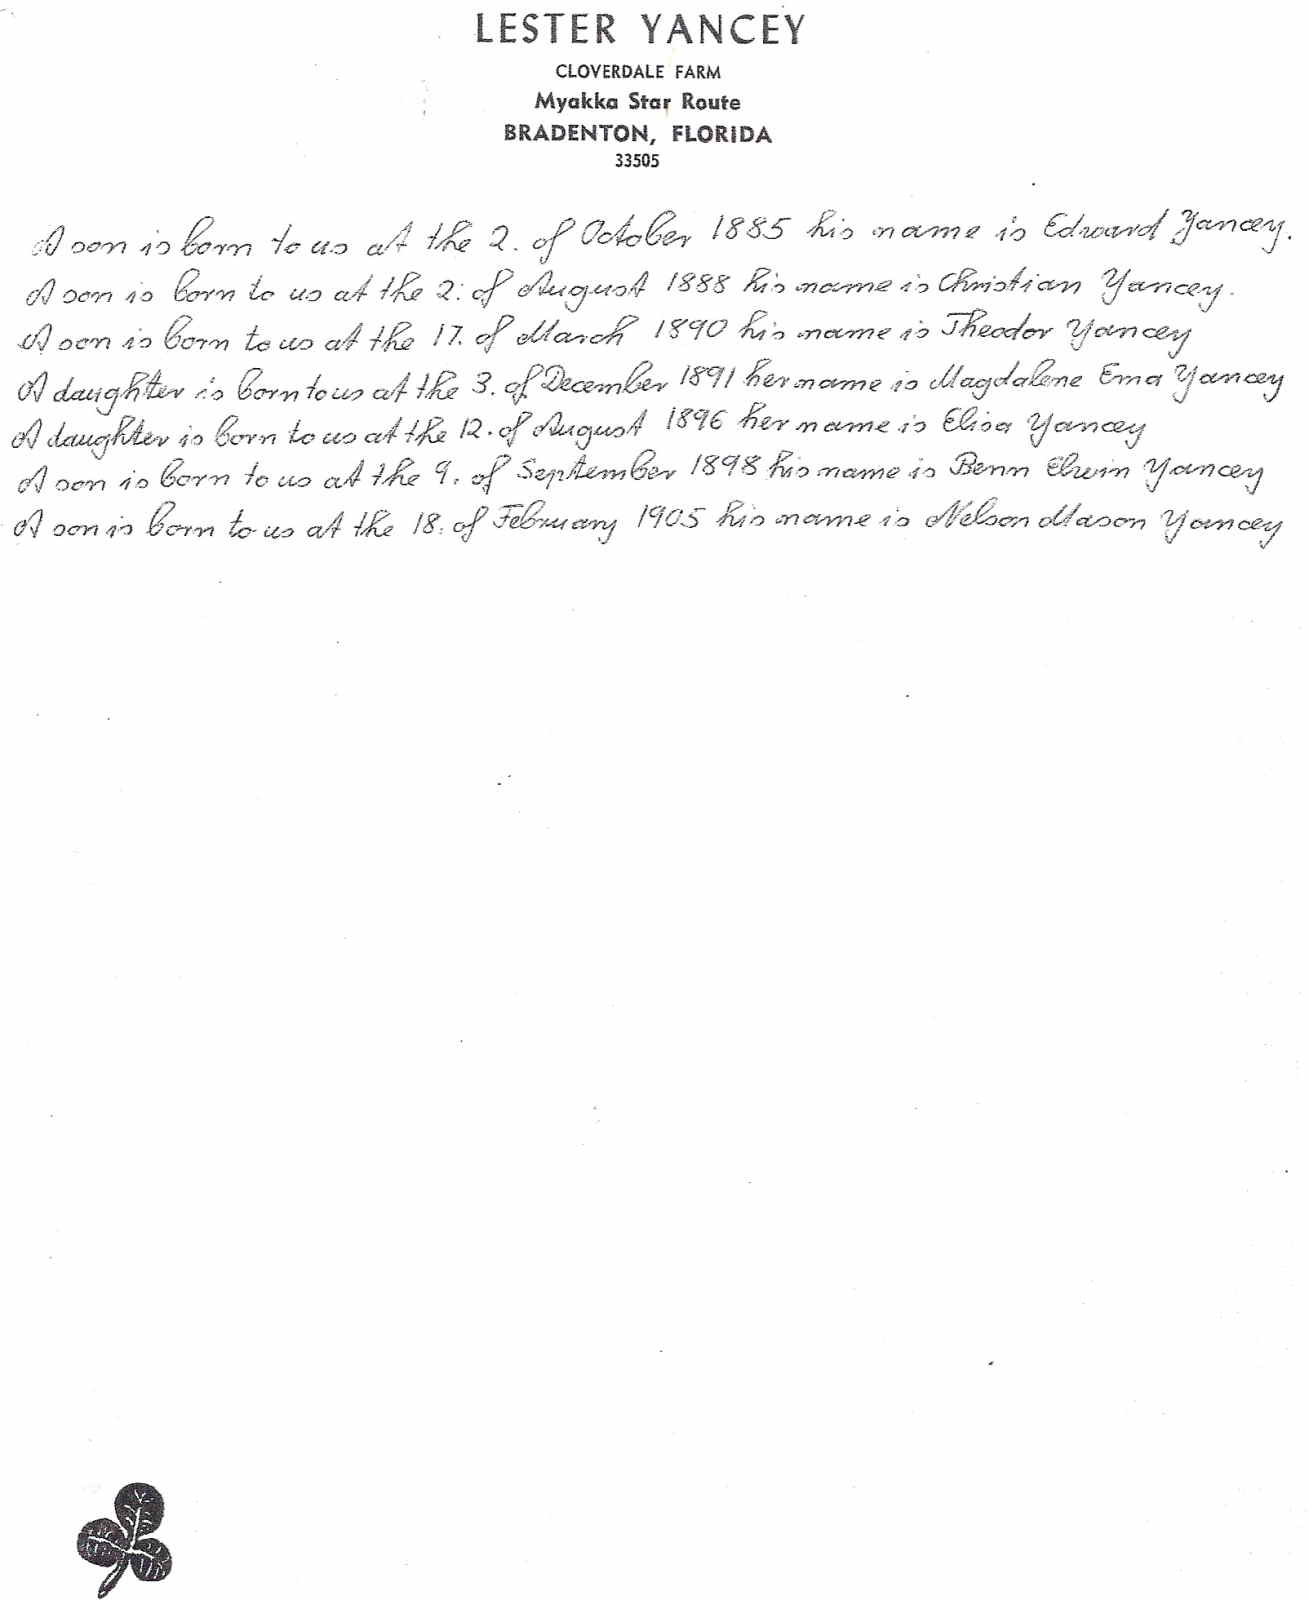 LESTER YANCEY
CLOVERDALE FARM
Myakka Star Route
BRADENTON, FLORIDA
33505
A son is born to us at the 2. of October 1885 his name is Edward Yancey.
A son is born to us at the 2. of August 1888 his name is Christian Yancey.
A son is born to us at the 17. of March 1890 his name is Theodor Yancey
A daughter is born to us at the 3. of December 1891 her name is Magdalene Ema Yancey
A daughter is born to us at the 12. of August 1896 her name is Elisa Yancey
A son is born to us at the 9. of September 1898 his name is Benn Elwin Yancey
A son is born to us at the 18. of February 1905 his name is Nelson Mason Yancey